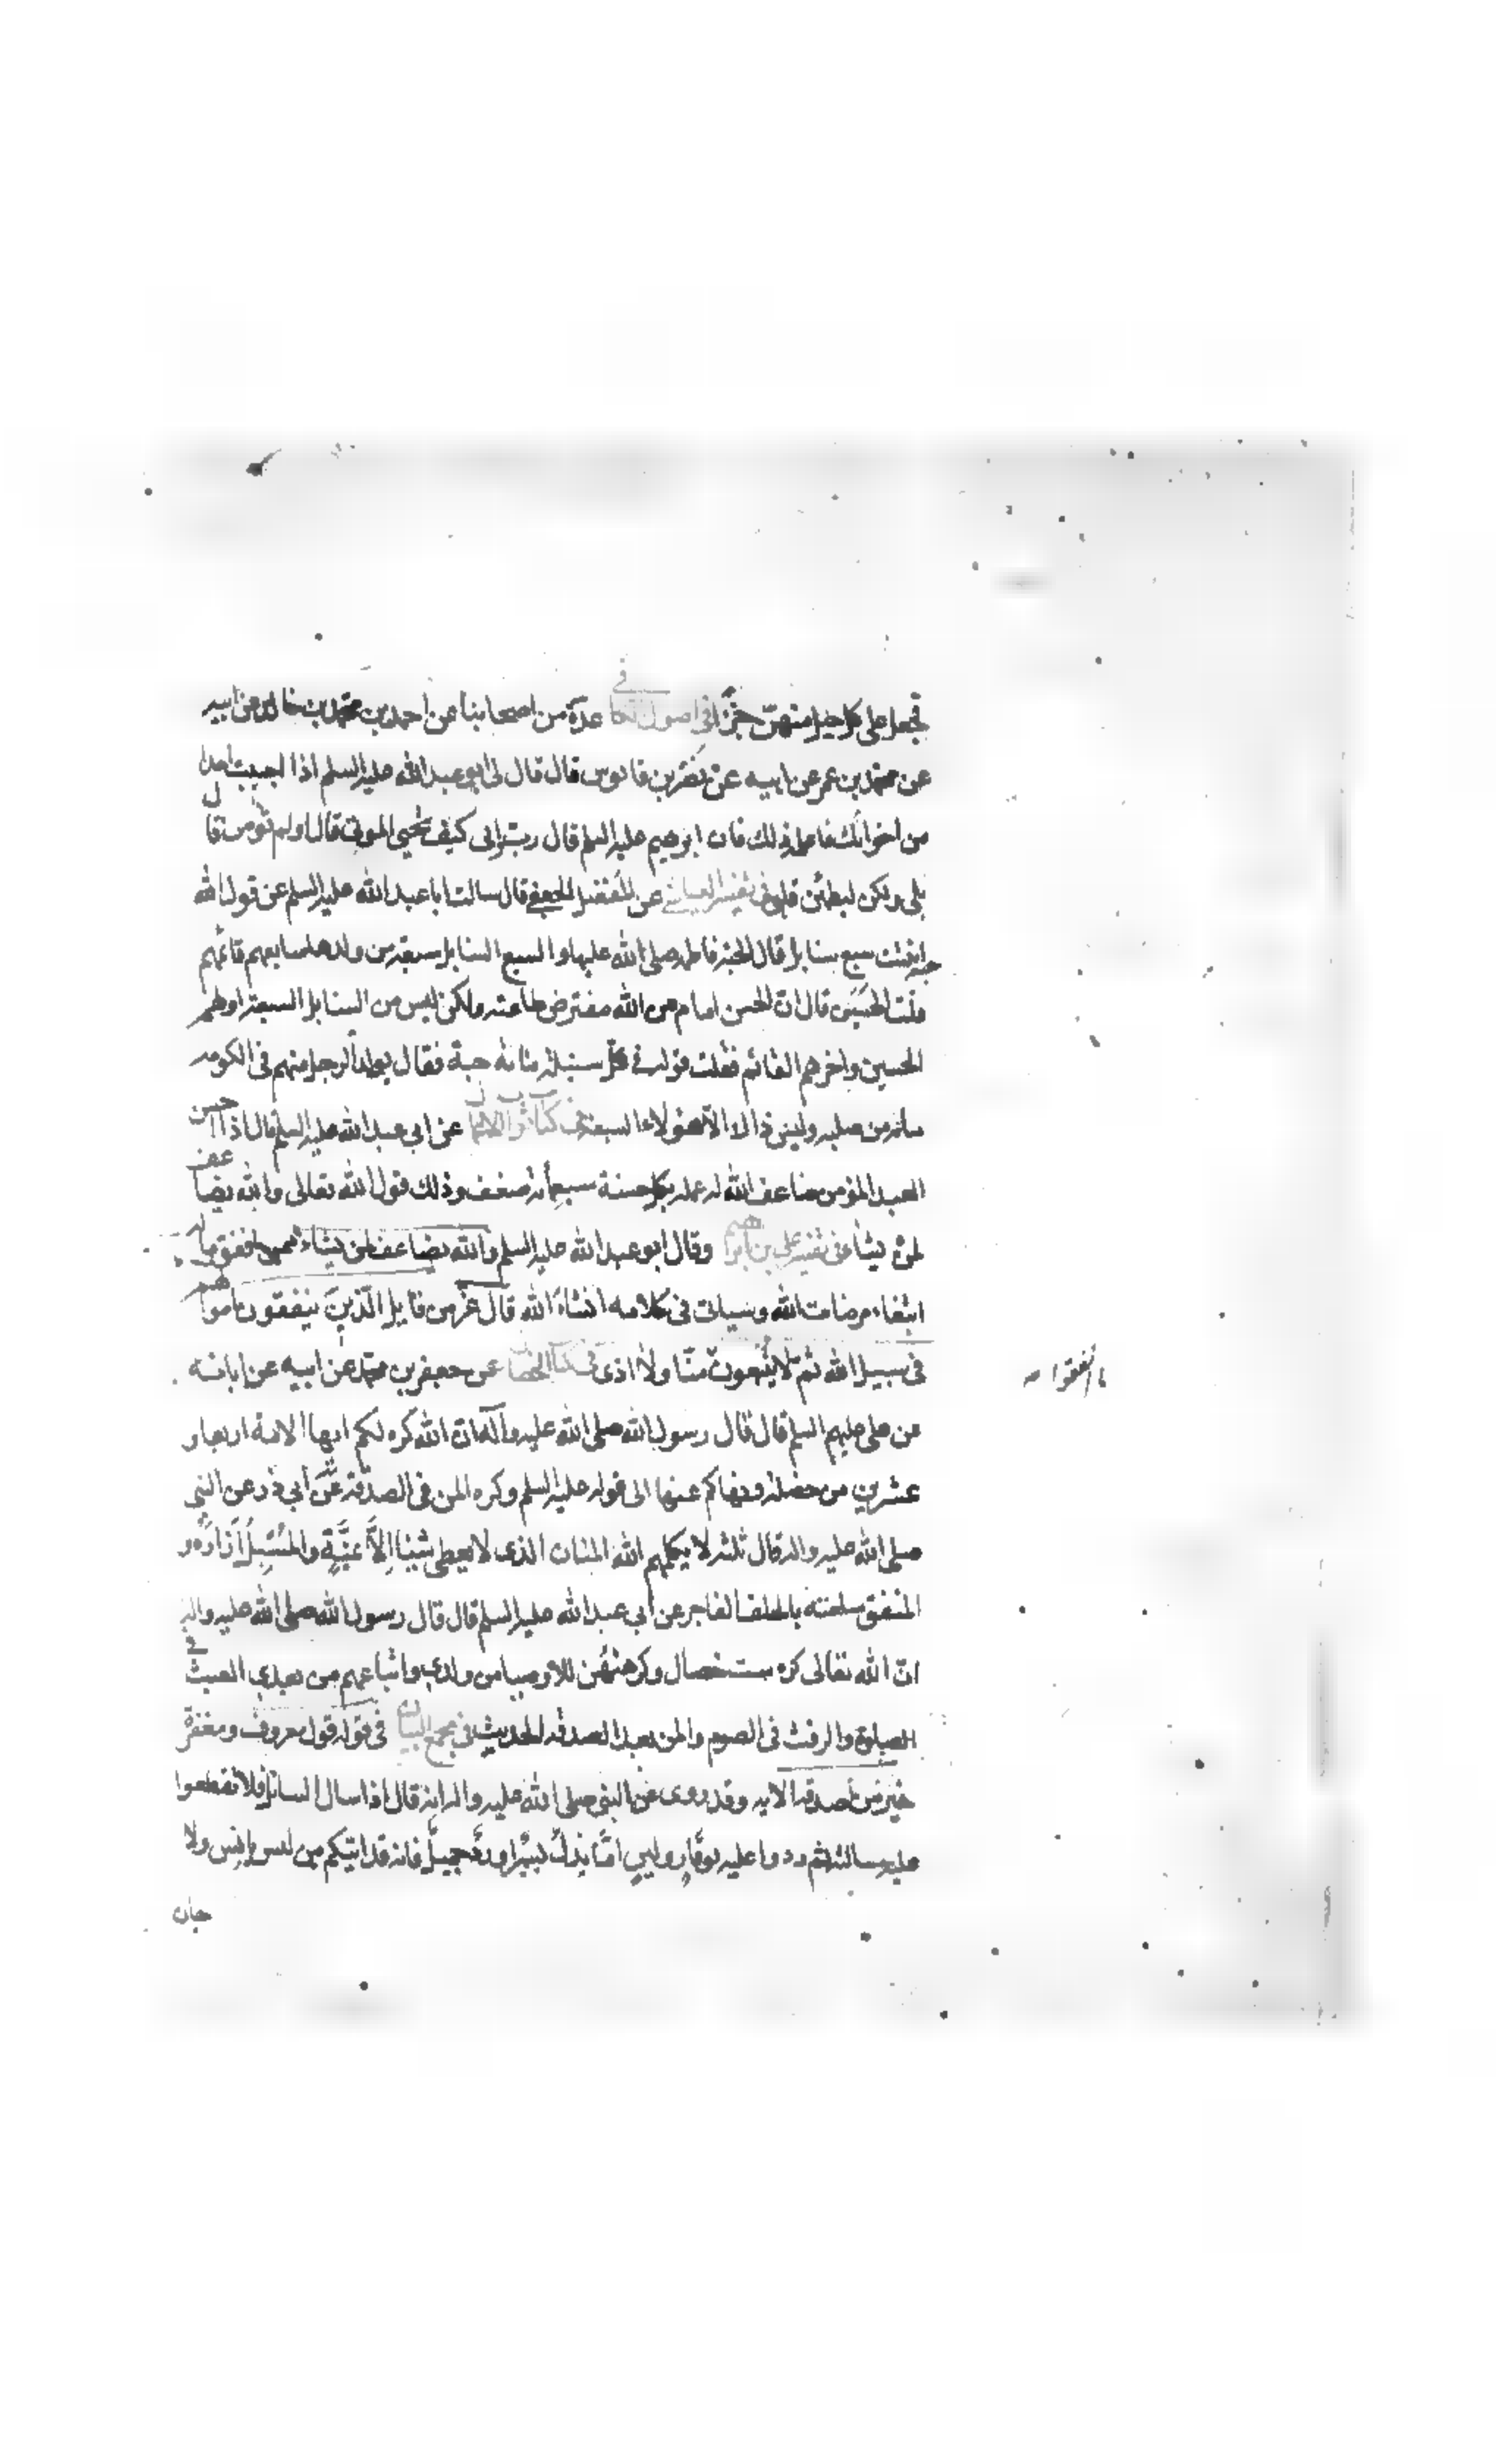 فجعل على كل جبل منهن جزءا في اصول الكافي عدة من اصحابنا عن احمد بن محمد بن خالد عن ابيه
عن محمد بن عمر عن ابيه عن نصر بن قابوس قال قال لى ابو عبد الله عليه السلم اذا احببت احدا
من اخوانك فاعلمه ذلك فان ابرهيم عليه السلم قال رب ارنى كيف تحيى الموتى قال اولم تؤمن قال
بلى ولكن ليطمئن قلبى فى تفسير العياشى عن المفضل الجعفى قال سالت ابا عبد الله عليه السلم عن قول الله
حبة انبتت سبع سنابل قال الحبة فاطمة صلى الله عليها والسبع السنابل سبعة من ولدها سابعهم قائمهم
قلت الحسن قال ان الحسن امام من الله مفترض طاعته ولكن ليس من السنابل السبعة اولهم
الحسين واخرهم القائم فقلت قوله فى كل سنبلة مائة حبة فقال يولد الرجل منهم فى الكوفه
مائة من صلبه وليس ذاك الا هؤلاء السبعة فى كتاب ثواب الاعمال عن ابى عبد الله عليه السلم قال اذا احسن
العبد المؤمن ضاعف الله له عمله بكل حسنة سبعمائة ضعف وذلك قول الله تعالى والله يضاعف
لمن يشاء فى تفسير على بن ابراهيم وقال ابو عبد الله عليه السلم والله يضاعف لمن يشاء لمن انفق ماله
ابتغاء مرضات الله وسياتى فى كلامه انشاء الله قال عز من قايل الذين ينفقون اموالهم
فى سبيل الله ثم لا يتبعون منا ولا اذى فى كتاب الخصال عن جعفر بن محمد عن ابيه عن ابائه
ما انفقوا صح
عن على عليهم السلم قال قال رسول الله صلى الله عليه وآله ان الله كره لكم ايها الامة اربعا و
عشرين من خصلة ونهاكم عنها الى قوله عليه السلم وكره المن فى الصدقة عن أبي ذر عن النبى
صلى الله عليه واله قال ثلثة لا يكلمهم الله المنان الذى لا يعطى شيئا الا بمنة والمسبل ازاره و
المنفق سلعته بالحلف الفاجر عن أبى عبد الله عليه السلم قال قال رسول الله صلى الله عليه واله
ان الله تعالى كره ست خصال وكرهتهن للاوصيا من ولدى واتباعهم من بعدى العبث في
الصلوة والرفث فى الصوم والمن بعد الصدقه الحديث فى مجمع البيان فى قوله قول معروف ومغفرة
خير من صدقه الايه وقد روى عن النبى صلى الله عليه واله انه قال اذا سال السائل فلا تقطعوا
عليه مسالته ثم ردوا عليه بوقار ولين اما بذل يسير او رد جميل فانه قد ياتيكم من ليس بانس ولا
جان